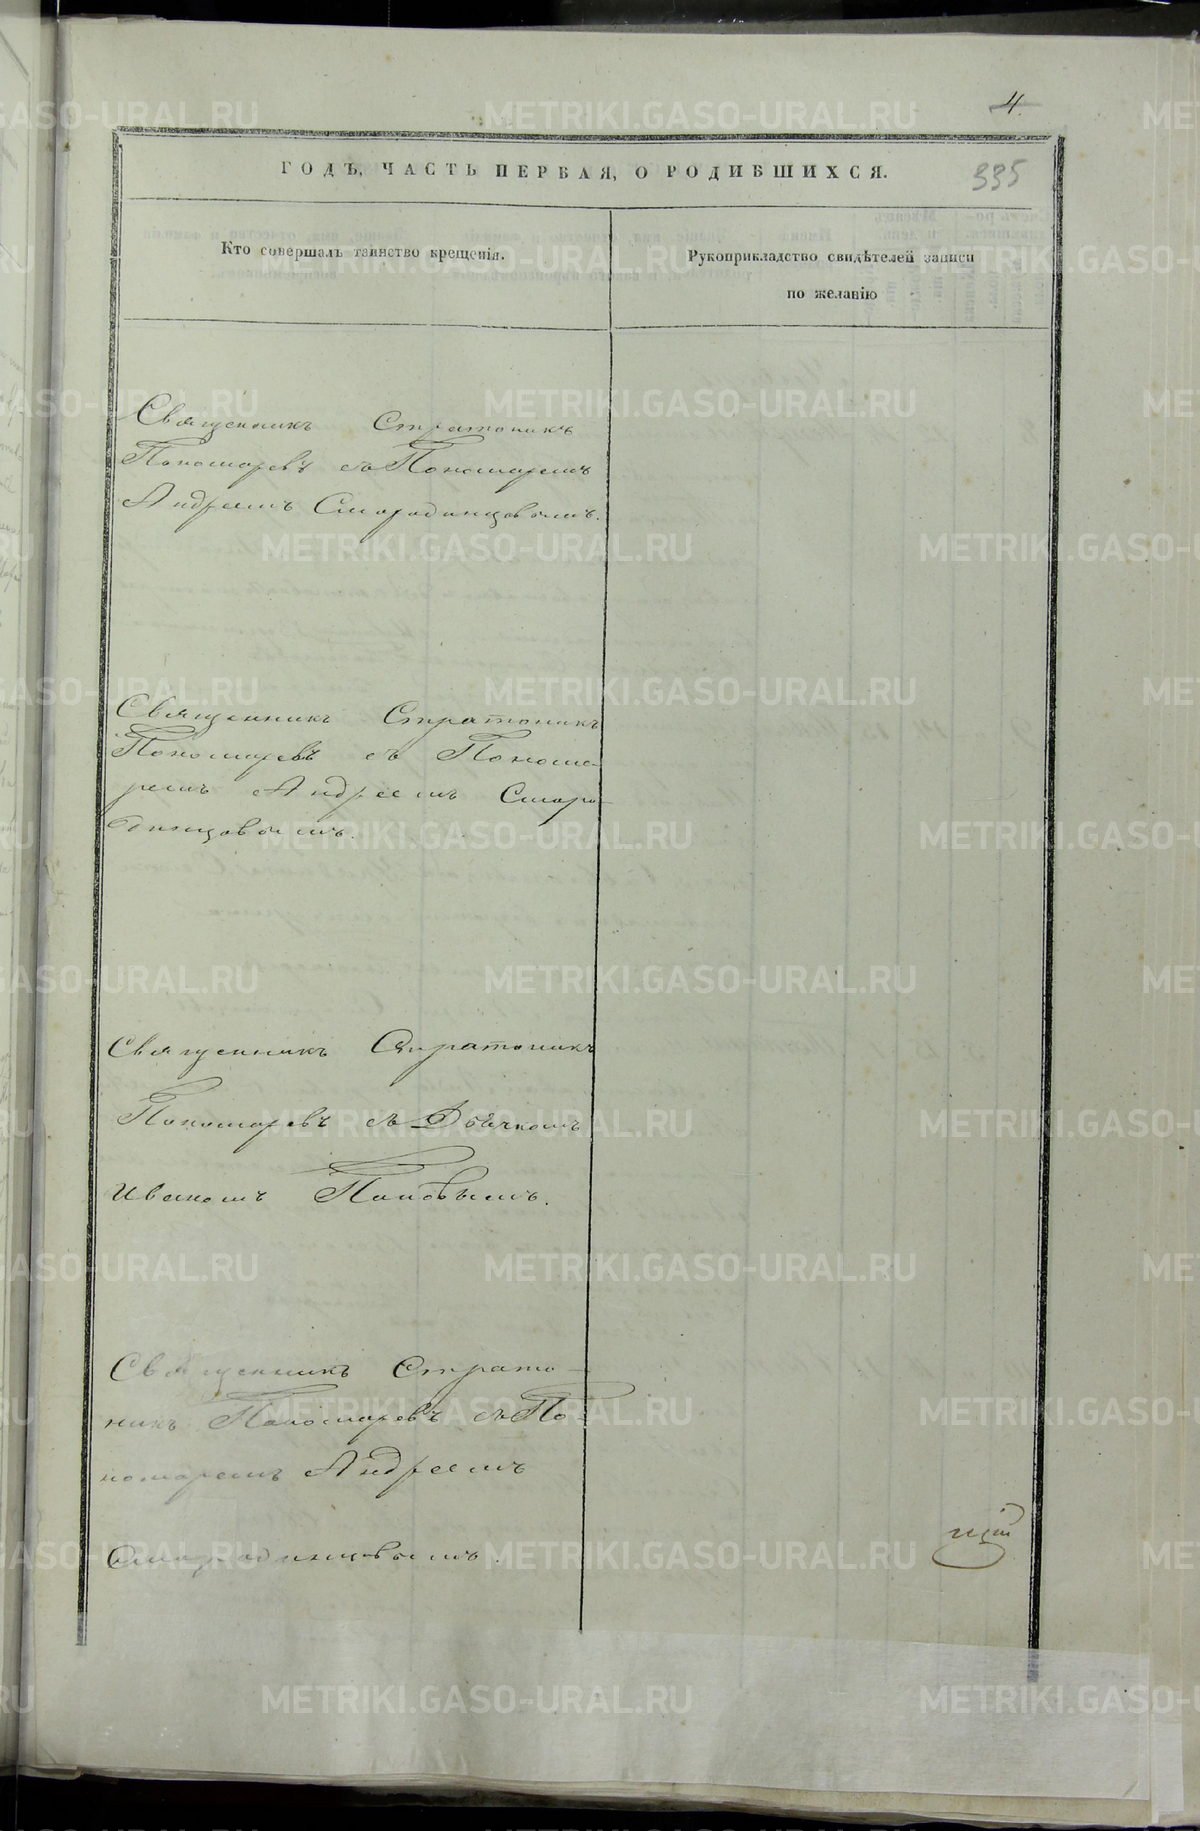 4.
ГОДЪ, ЧАСТЬ ПЕРВАЯ, О РОДИВШИХСЯ.
335
Кто совершалъ таинство крещенія.
Рукоприкладство свидѣтелей записи
по желанію
Священникъ Стратоникъ
Пономаревъ съ Пономаремъ
Андреемъ Смородинцовымъ.
Священникъ Стратоникъ
Пономаревъ съ Понома-
ремъ Андреемъ Сморо-
динцовымъ.
Священникъ Стратоникъ
Пономаревъ съ Дьячкомъ
Иваномъ Поповымъ.
Священникъ Страто-
никъ Пономаревъ съ По-
номаремъ Андреемъ
Смородинцовымъ.
METRIKI.GASO-URAL.RU